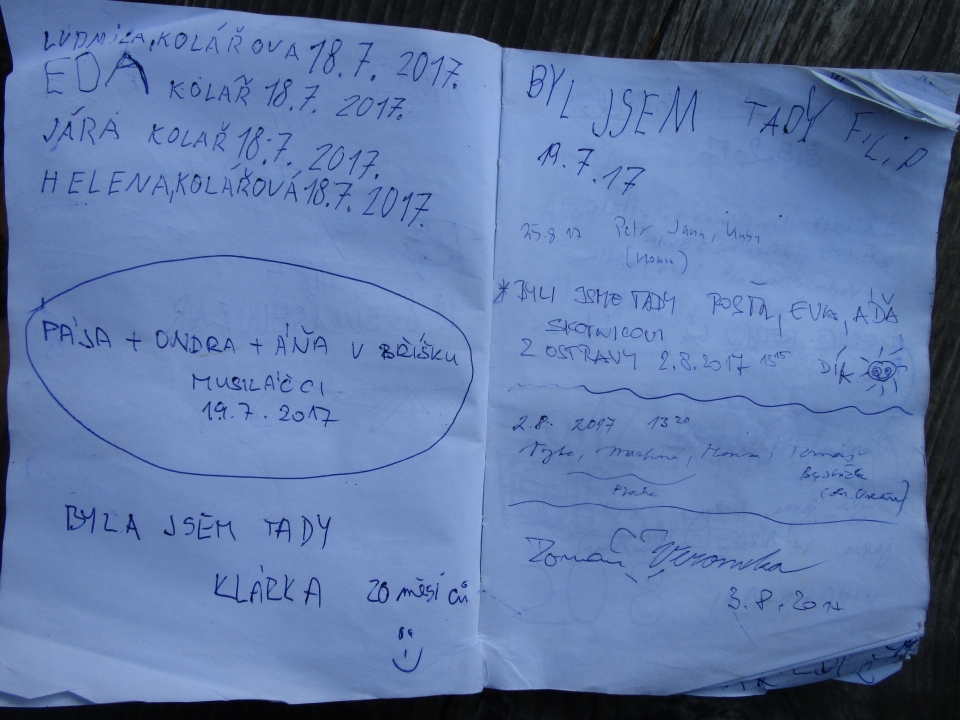 LUDMILA,KOLÁŘOVA 18.7. 2017.
EDA KOLAŘ 18.7. 2017.
JÁRA KOLAŘ 18.7. 2017.
HELENA,KOLÁŘOVÁ 18.7. 2017.
PÁJA + ONDRA + ÁŇA V BŘÍŠKU
MUSILÁČCI
19.7. 2017
BYLA JSEM TADY
KLÁRKA 20 měsíců
BYL JSEM TADY FILIP
19.7.17
25.8.17 Petr, Jana,
* BYLI JSME TADY POSŤA, EVA, AĎA
SKOTNICOVI
Z OSTRAVY 2.8.2017 13¹⁵ DÍK
2.8. 2017 13²⁰
Tomáš
Roman Veronika
3.8.2017